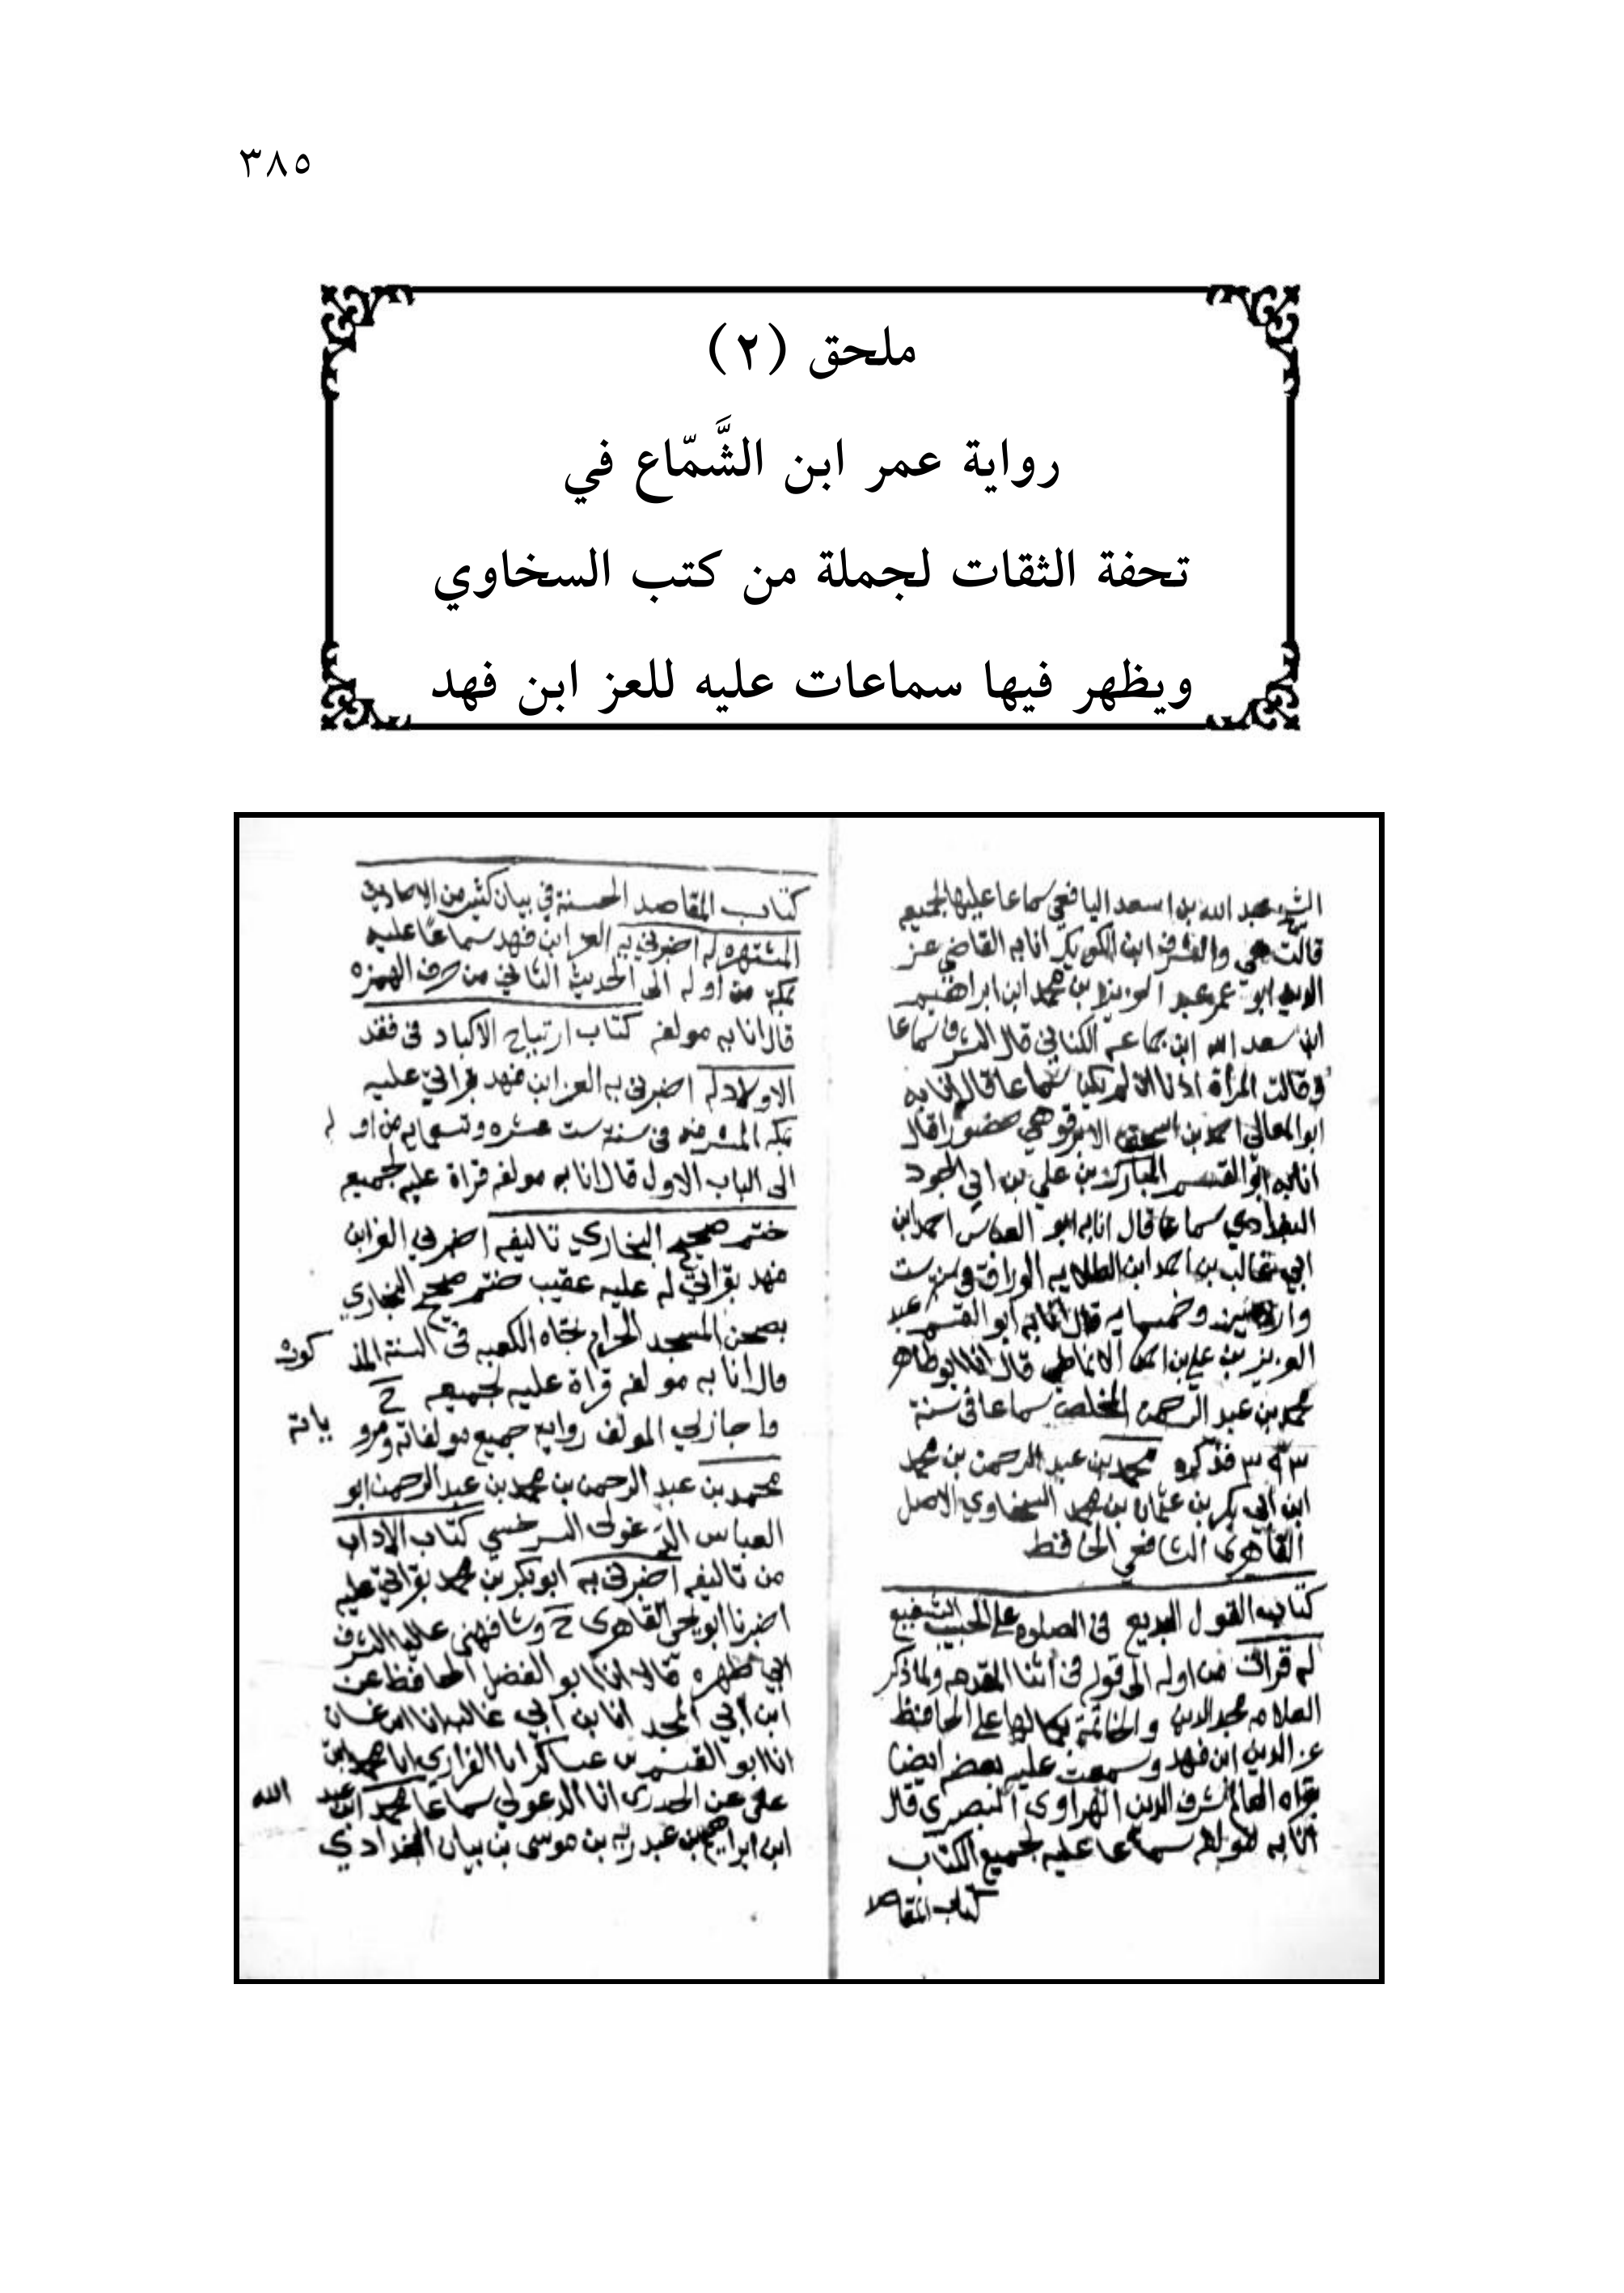 ٣٨٥
ملحق (٢)
رواية عمر ابن الشَّمّاع في
تحفة الثقات لجملة من كتب السخاوي
ويظهر فيها سماعات عليه للعز ابن فهد
الشيخ عبد الله بن اسعد اليافعي سماعا عليها لجميعه
قالت هي والشرف ابن الكويك انا به القاضي عز
الدين ابو عمر عبد العزيز بن محمد ابن ابراهيم
ابن سعد الله ابن جماعه الكناني قال الشرف سماعا
وقالت المرأة اذنا ان لم يكن سماعا قال انا به
ابو المعالي احمد بن اسحق الابرقوهي حضورا قال
انا به ابو القسم المبارك بن علي بن ابي الجود
البغدادي سماعا قال انا به ابو العباس احمد ابن
ابي غالب بن احمد ابن الطلايه الوراق في سنة ست
واربعين وخمسمايه قال انا به ابو القسم عبد
العزيز بن علي بن احمد الانماطي قال انا ابو طاهر
محمد بن عبد الرحمن المخلص سماعا في سنة
٣٩٣ فذكره محمد بن عبد الرحمن بن محمد
ابن ابي بكر بن عثمان بن محمد السخاوي الاصل
القاهرى الشافعي الحافظ
كتابه القول البديع في الصلوه على الحبيب الشفيع
له قرات من اوله الى قوله في اثنا المقدمه ولما ذكر
العلامه مجد الدين والخاتمة بكمالها على الحافظ
عز الدين ابن فهد وسمعت عليه بعضه ايضا
بقراه العالم شرف الدين البصري قال
انا به مولفه سماعا عليه لجميع الكتاب
كتاب المقاصد
كتاب المقاصد الحسنة في بيان كثير من الاحاديث
المشتهره له اخبرني به العز ابن فهد سماعا عليه
بمكة من اوله الى الحديث الثاني من حرف الهمزه
قال انا به مولفه كتاب ارتياح الاكباد في فقد
الاولاد له اخبرني به العز ابن فهد بقراتي عليه
بمكه المشرفه في سنة ست عشره وتسعمايه من اوله
الى الباب الاول قال انا به مولفه قراة عليه لجميعه
ختم صحيح البخاري تاليفه اخبرني العز ابن
فهد بقراتي له عليه عقيب ختم صحيح البخاري
بصحن المسجد الحرام تجاه الكعبه في السنة المذكوره
قال انا به مولفه قراة عليه لجميعه ح
واجازلي المولف روايه جميع مولفاته ومروياته
محمد بن عبد الرحمن بن محمد بن عبد الرحمن ابو
العباس الدغولى السرخسي كتاب الاداب
من تاليفه اخبرني به ابو بكر بن محمد بقراتي عليه
اخبرنا ابو يحيى القاهرى ح وشافهني عاليا الشرف
ابن ظهيره قالا انا ابو الفضل الحافظ عن
ابن ابي المجد انا بن ابي غالب انا
انا ابو القسم بن عساكر انا الفراوي انا محمد بن
علي عن الجوزقي انا الدغولي سماعا محمد ابن عبد الله
ابن ابراهيم بن عبد ربه بن موسى بن بيان البغدادي